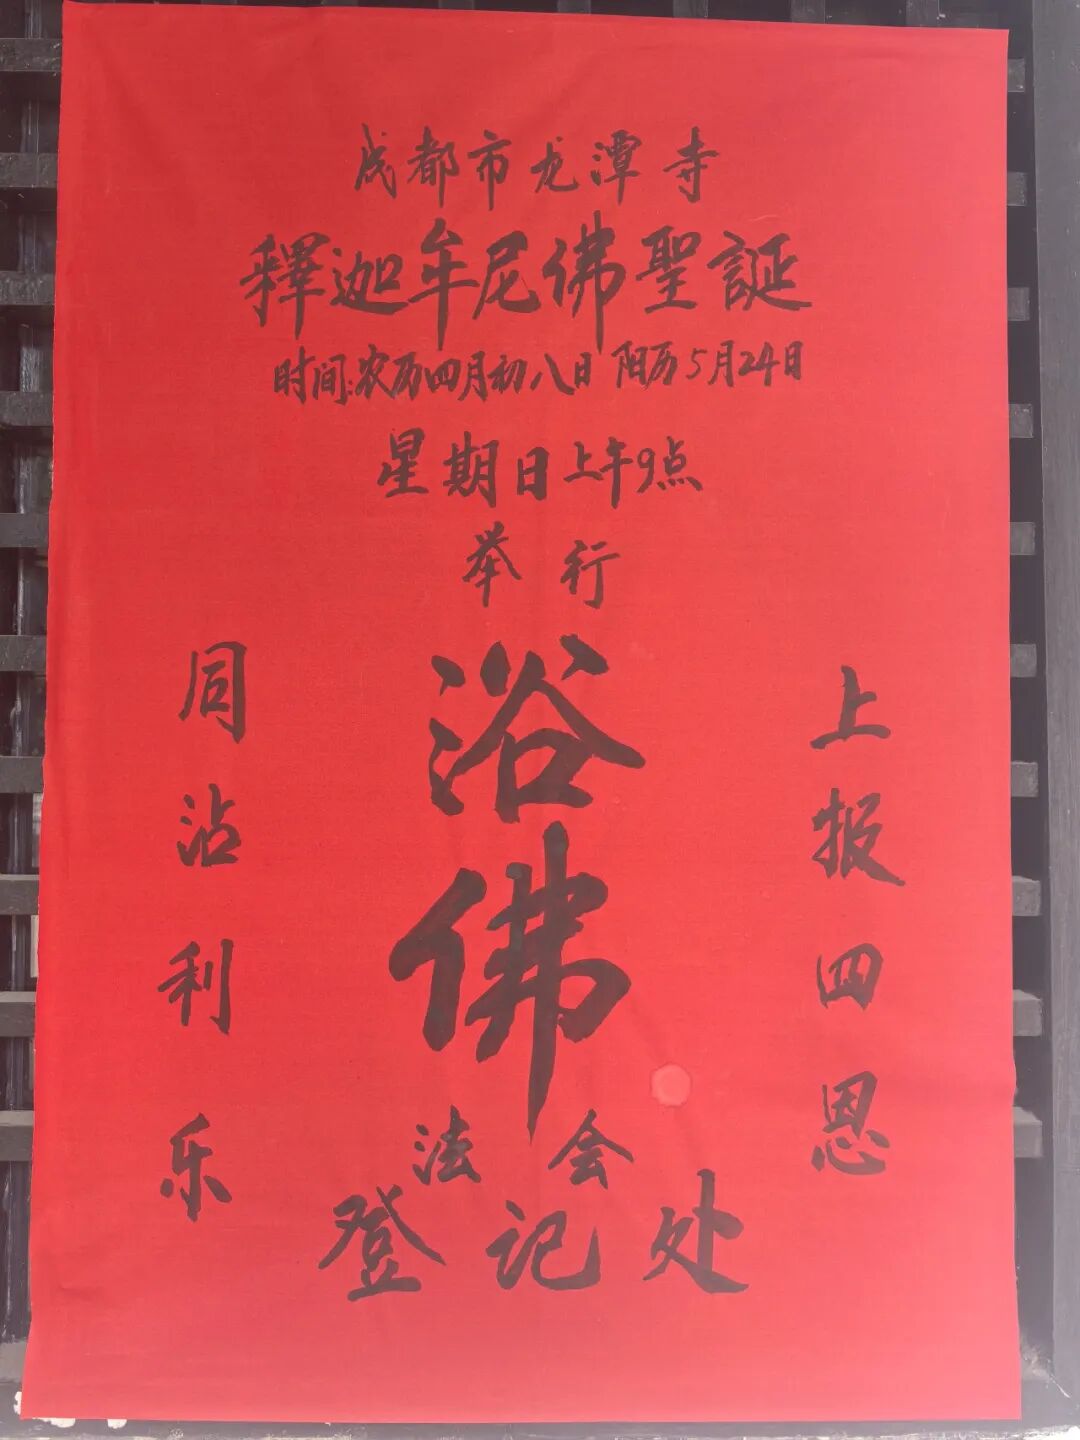 成都市龙潭寺
釋迦牟尼佛聖誕
时间:农历四月初八日 阳历5月24日
星期日上午9点
举行
浴佛
法会
登记处
上报四恩
同沾利乐